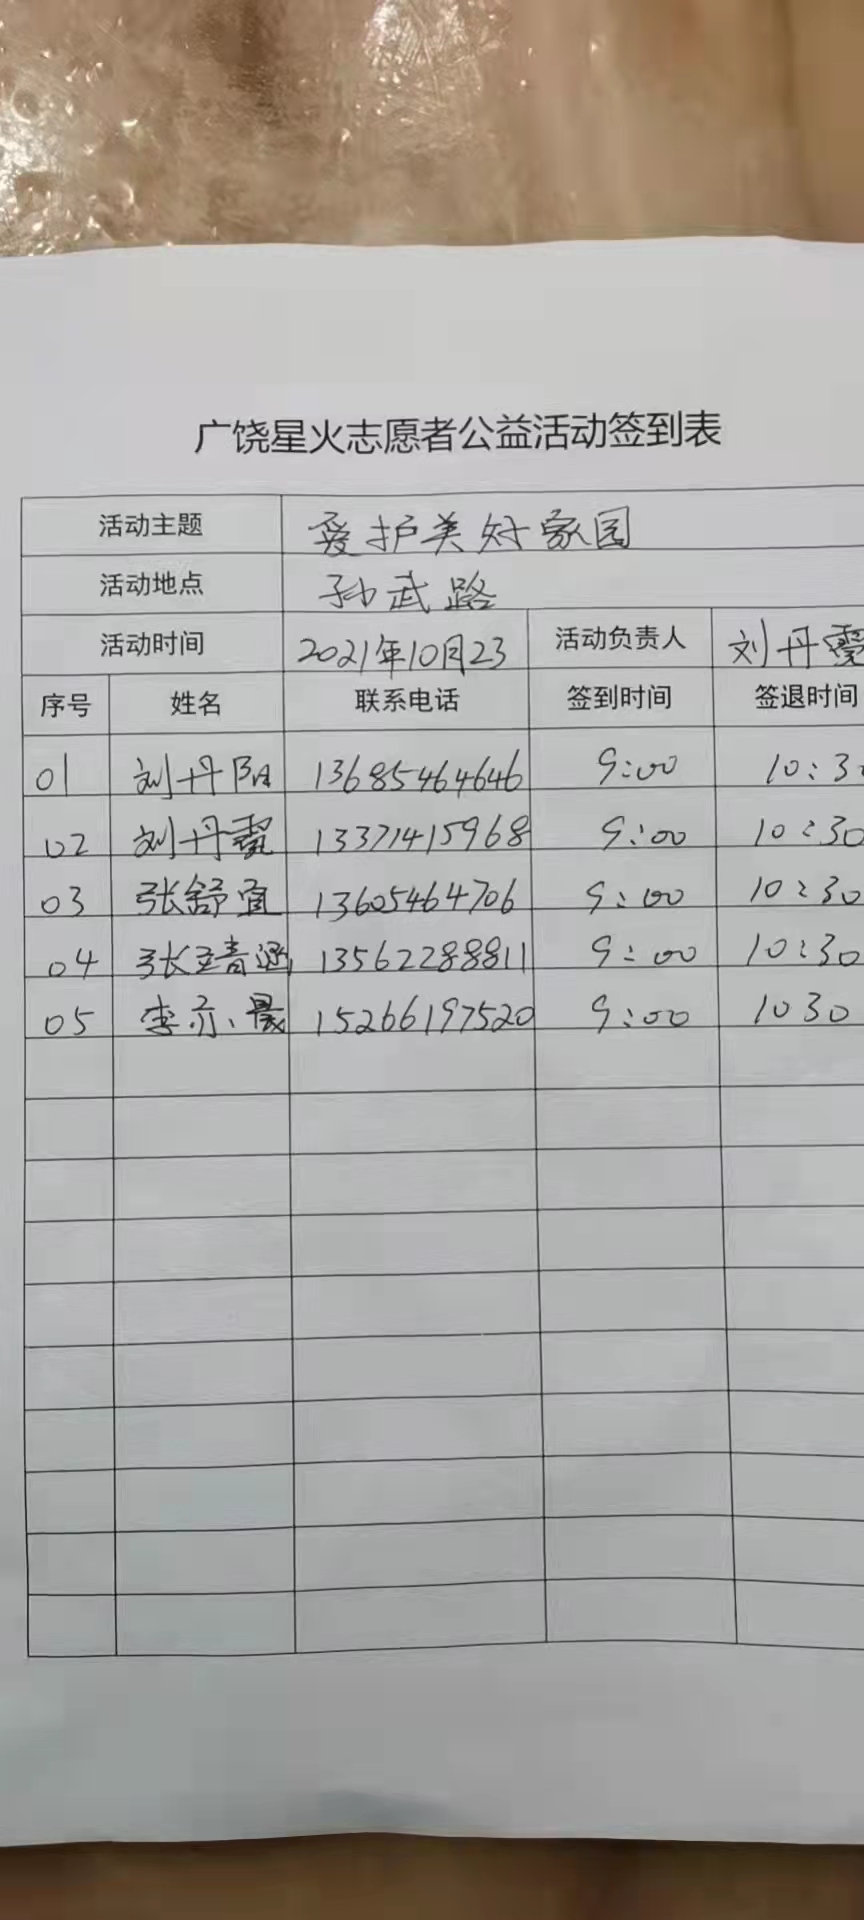 广饶星火志愿者公益活动签到表
活动主题 爱护美好家园
活动地点 孙武路
活动时间 2021年10月23 活动负责人 刘丹霞
序号 姓名 联系电话 签到时间 签退时间
01 刘丹阳 13685464646 9:00 10:30
02 刘丹霞 13371415968 9:00 10:30
03 张舒宜 13605464706 9:00 10:30
04 张靖涵 13562288811 9:00 10:30
05 李亦晟 15266197520 9:00 10 30